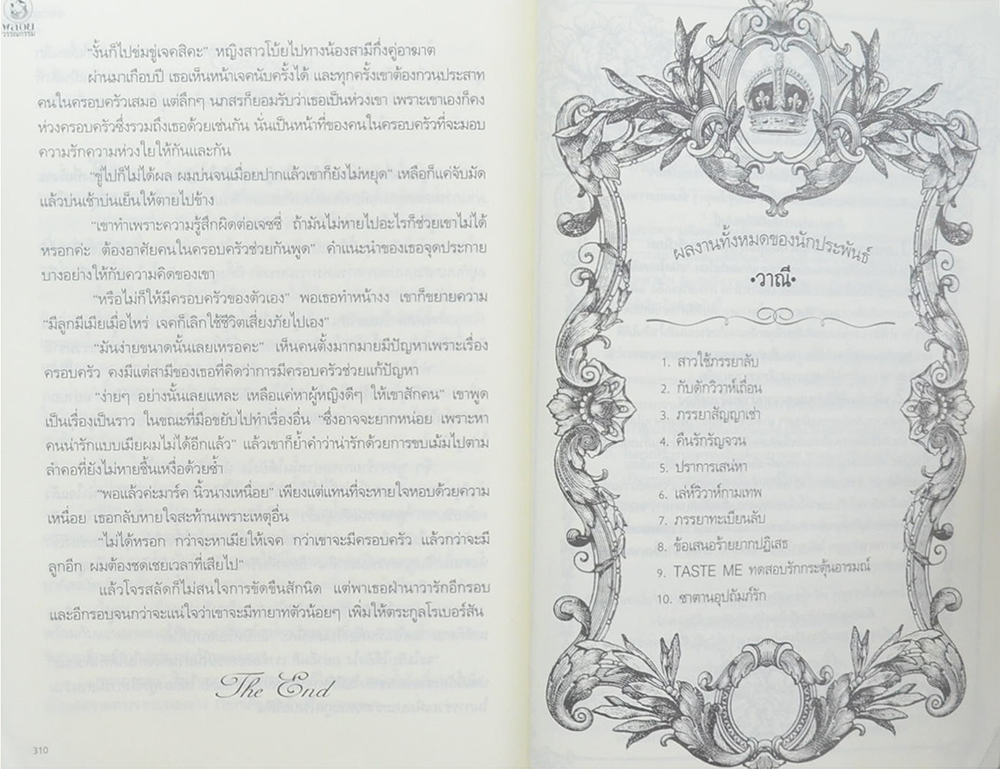 พลอย
วรรณกรรม
"งั้นก็ไปข่มขู่เจคสิคะ" หญิงสาวโบ้ยไปทางน้องสามีกึ่งคู่อาฆาต
ผ่านมาเกือบปี เธอเห็นหน้าเจคนับครั้งได้ และทุกครั้งเขาต้องกวนประสาท
คนในครอบครัวเสมอ แต่ลึกๆ นภสรก็ยอมรับว่าเธอเป็นห่วงเขา เพราะเขาเองก็คง
ห่วงครอบครัวซึ่งรวมถึงเธอด้วยเช่นกัน นั่นเป็นหน้าที่ของคนในครอบครัวที่จะมอบ
ความรักความห่วงใยให้กันและกัน
"ขู่ไปก็ไม่ได้ผล ผมบ่นจนเมื่อยปากแล้วเขาก็ยังไม่หยุด" เหลือก็แค่จับมัด
แล้วบ่นเช้าบ่นเย็นให้ตายไปข้าง
"เขาทำเพราะความรู้สึกผิดต่อเจซซี่ ถ้ามันไม่หายไปอะไรก็ช่วยเขาไม่ได้
หรอกค่ะ ต้องอาศัยคนในครอบครัวช่วยกันพูด" คำแนะนำของเธอจุดประกาย
บางอย่างให้กับความคิดของเขา
"หรือไม่ก็ให้มีครอบครัวของตัวเอง" พอเธอทำหน้างง เขาก็ขยายความ
"มีลูกมีเมียเมื่อไหร่ เจคก็เลิกใช้ชีวิตเสี่ยงภัยไปเอง"
"มันง่ายขนาดนั้นเลยเหรอคะ" เห็นคนตั้งมากมายมีปัญหาเพราะเรื่อง
ครอบครัว คงมีแต่สามีของเธอที่คิดว่าการมีครอบครัวช่วยแก้ปัญหา
"ง่ายๆ อย่างนั้นเลยแหละ เหลือแค่หาผู้หญิงดีๆ ให้เขาสักคน" เขาพูด
เป็นเรื่องเป็นราว ในขณะที่มือขยับไปทำเรื่องอื่น "ซึ่งอาจจะยากหน่อย เพราะหา
คนน่ารักแบบเมียผมไม่ได้อีกแล้ว" แล้วเขาก็ย้ำคำว่าน่ารักด้วยการขบเม้มไปตาม
ลำคอที่ยังไม่หายชื้นเหงื่อด้วยซ้ำ
"พอแล้วค่ะมาร์ค นิ้วนางเหนื่อย" เพียงแต่แทนที่จะหายใจหอบด้วยความ
เหนื่อย เธอกลับหายใจสะท้านเพราะเหตุอื่น
"ไม่ได้หรอก กว่าจะหาเมียให้เจค กว่าเขาจะมีครอบครัว แล้วกว่าจะมี
ลูกอีก ผมต้องชดเชยเวลาที่เสียไป"
แล้วโจรสลัดก็ไม่สนใจการขัดขืนสักนิด แต่พาเธอฝ่านาวารักอีกรอบ
และอีกรอบจนกว่าจะแน่ใจว่าเขาจะมีทายาทตัวน้อยๆ เพิ่มให้ตระกูลโรเบอร์สัน
The End
310
ผลงานทั้งหมดของนักประพันธ์
•วาณี•
1. สาวใช้ภรรยาลับ
2. กับดักวิวาห์เถื่อน
3. ภรรยาสัญญาเช่า
4. คืนรักรัญจวน
5. ปราการเสน่หา
6. เล่ห์วิวาห์กามเทพ
7. ภรรยาทะเบียนลับ
8. ข้อเสนอร้ายยากปฏิเสธ
9. TASTE ME ทดสอบรักกระตุ้นอารมณ์
10. ซาตานอุปถัมภ์รัก